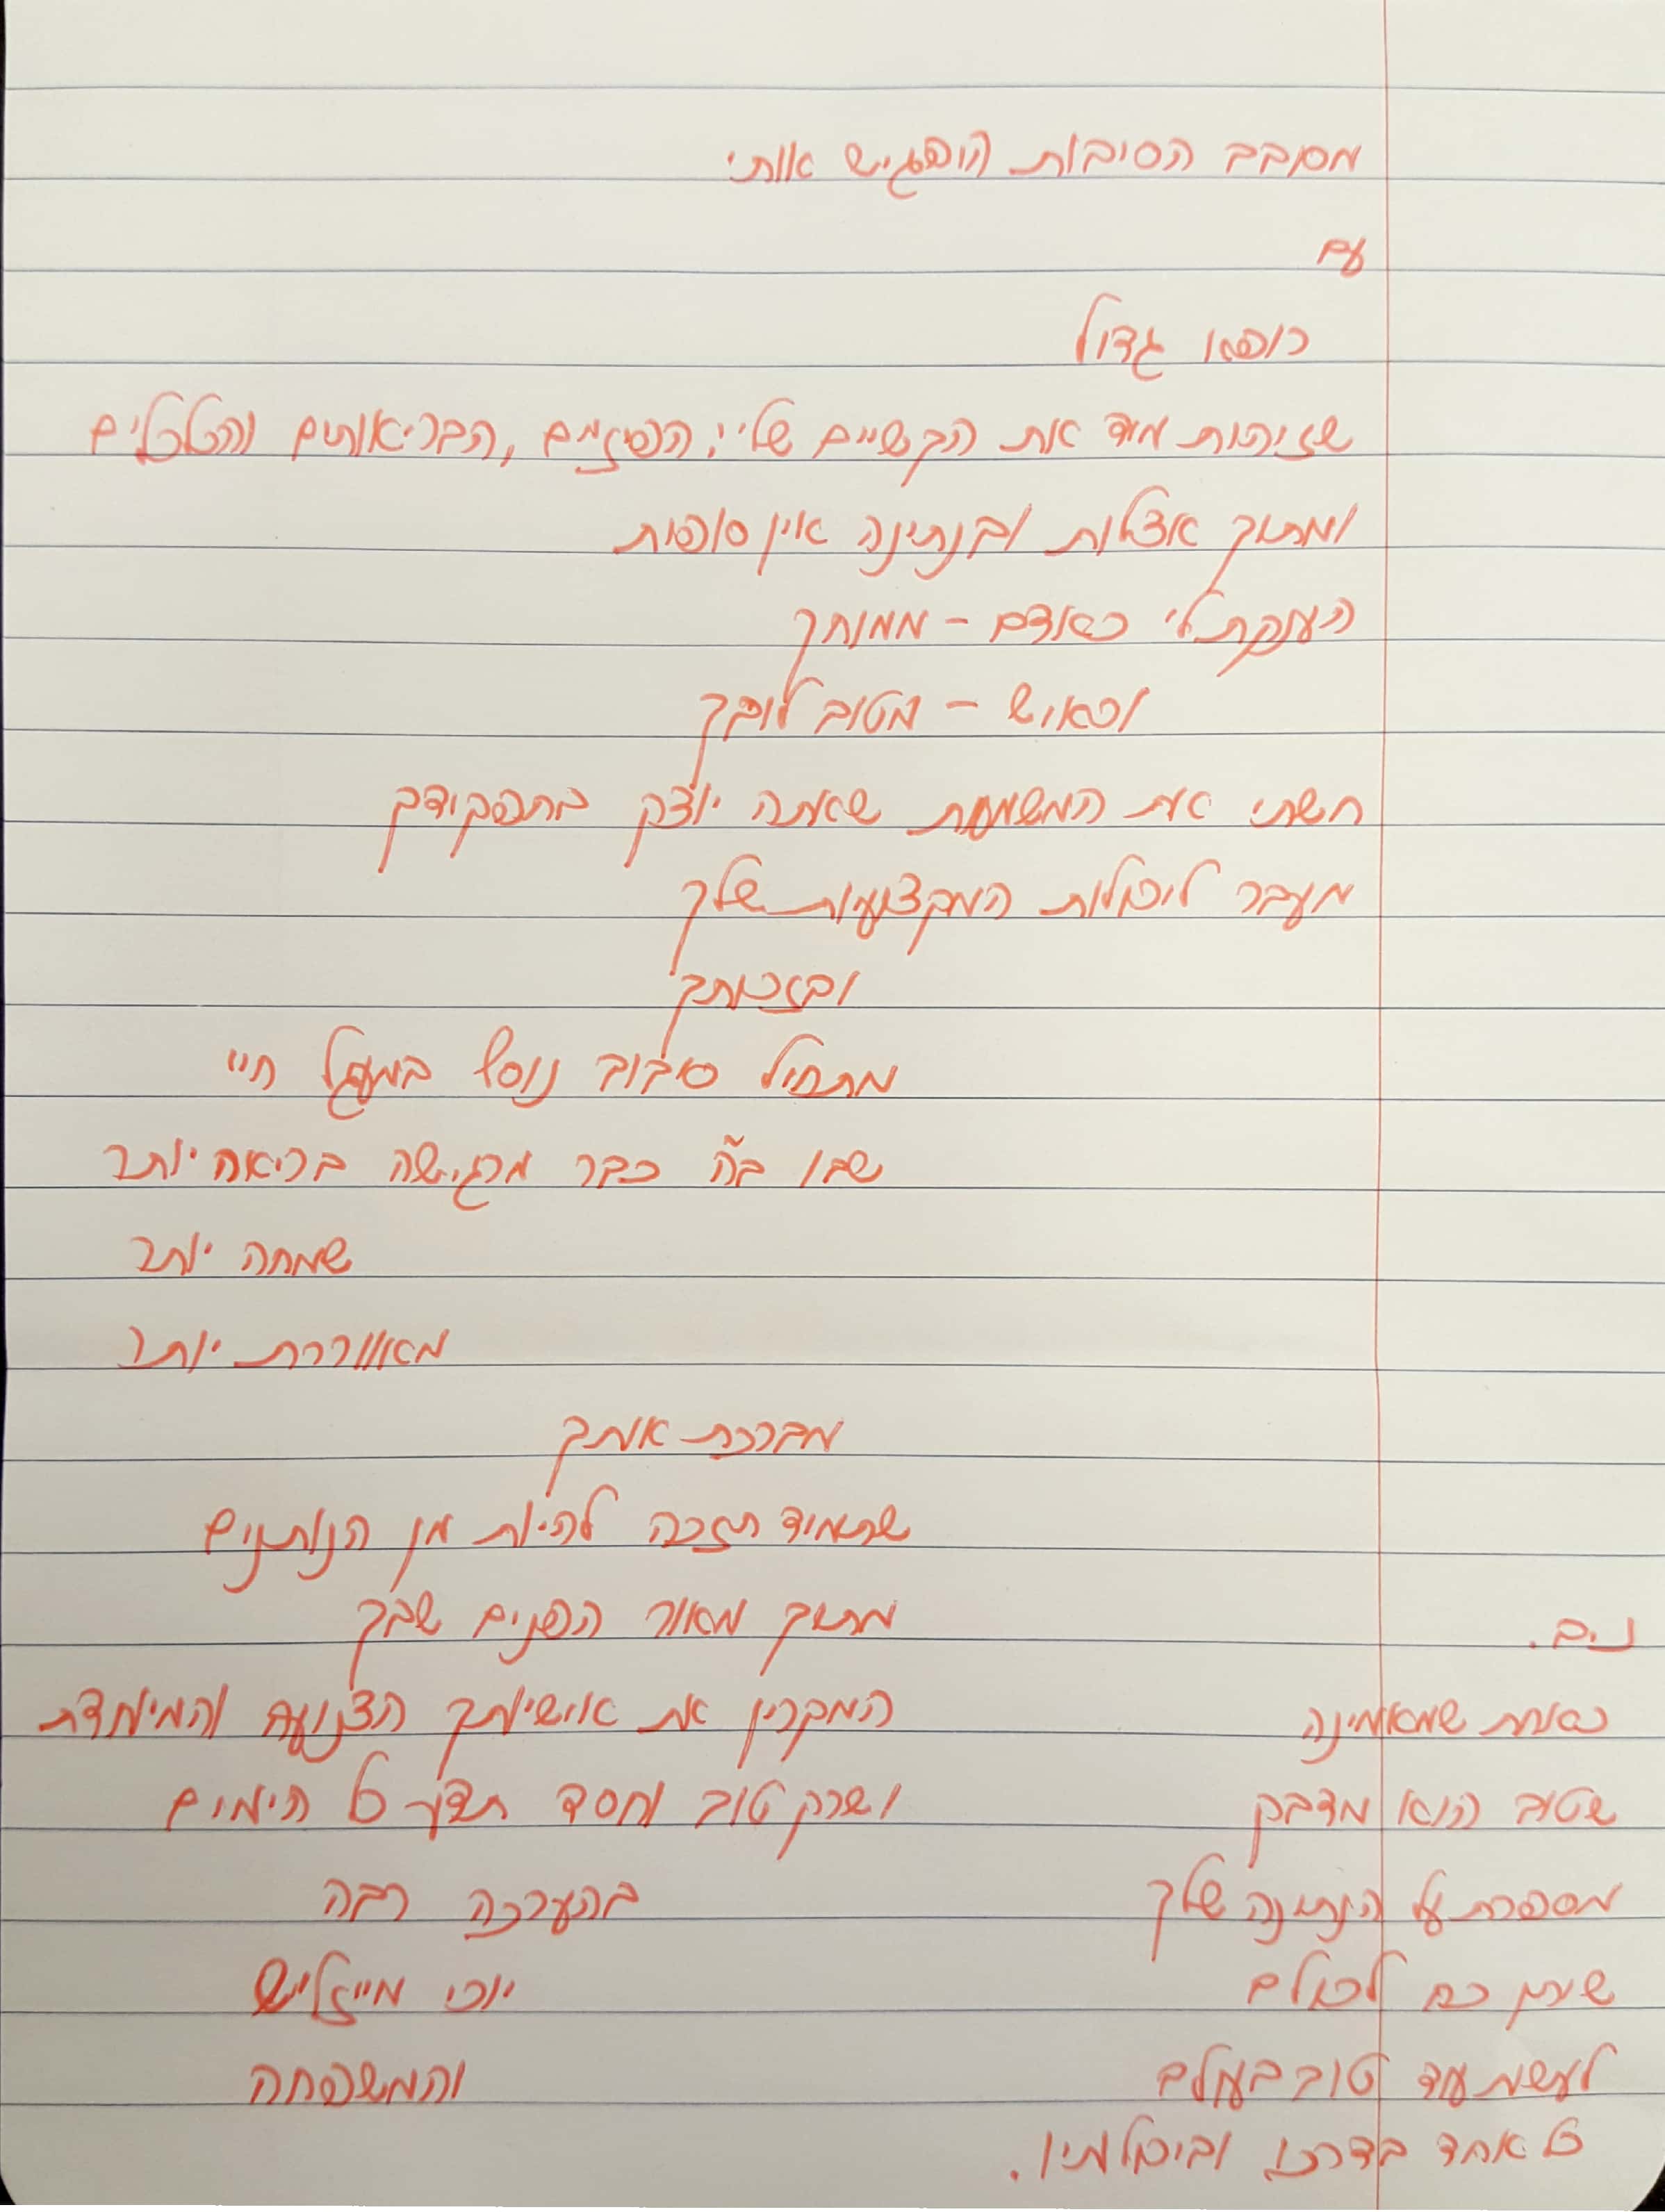 מסבב הסיבות הפגיש אותי
עם
רופא גדול
שזיהית מיד את הקשיים שלי: הפיזים, הבריאותים והכלכלים
ומתוך אצילות ובנתינה אין סופית
הענקת לי כאדם - ממותך
וכאיש - מטוב לובך
חשתי את המשמעות שאתה יוצק בתפקידך
מעבר ליכולות המקצועיות שלך
ובזכותך
מתחיל סיבוב נוסף במעגל חיי
שבו ב"ה כבר מרגישה בריאה יותר
שמחה יותר
מאווררת יותר
מברכת אותך
שתמיד תזכה להיות מן הנותנים
מתוך מאור הפנים שבך
המקרין את אישיותך הצנועה והמיוחדת
ושרק טוב וחסד כל הימים
בהערכה רבה
יוכי מייזליש
והמשפחה
נ.ב.
כאחת שמאמינה
שטוב הוא מדבק
מספרת על הנתינה שלך
שיתן כח לכולם
לעשות עוד טוב בעולם
כל אחד בדרכו וביכולתיו.